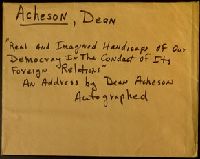 Acheson, Dean
"Real and Imagined Handicaps of Our
Democracy In The Conduct of Its
Foreign Relations"
An Address by Dean Acheson
Autographed